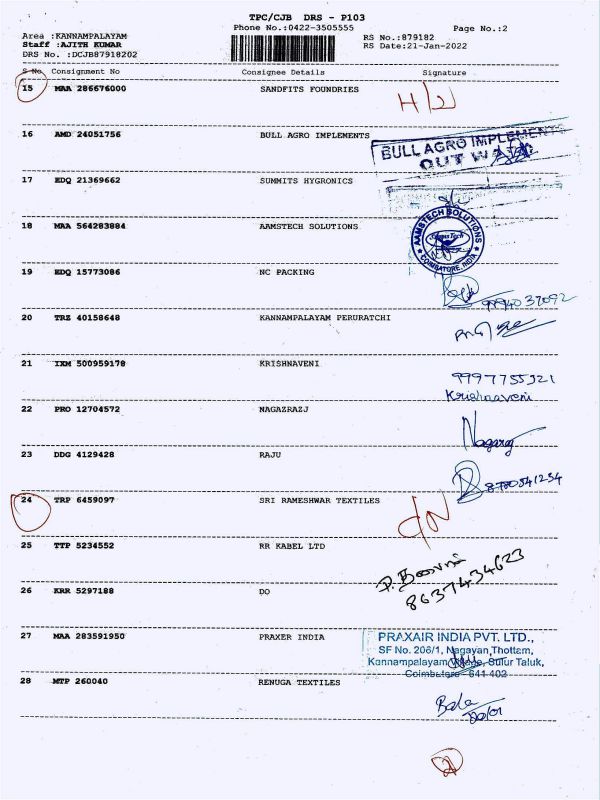 TPC/CJB DRS - P103
Phone No.:0422-3505555 Page No.:2
Area :KANNAMPALAYAM RS No.:879182
Staff :AJITH KUMAR RS Date:21-Jan-2022
DRS No. :DCJB87918202
S No. Consignment No Consignee Details Signature
15 MAA 286676000 SANDFITS FOUNDRIES
16 AMD 24051756 BULL AGRO IMPLEMENTS
BULL AGRO IMPLEMENTS
OUT WARD
17 EDQ 21369662 SUMMITS HYGRONICS
18 MAA 564283884 AAMSTECH SOLUTIONS
AAMSTECH SOLUTIONS
COIMBATORE, INDIA
19 EDQ 15773086 NC PACKING
9994037092
20 TRZ 40158648 KANNAMPALAYAM PERURATCHI
21 IXM 500959178 KRISHNAVENI
9997755921
Krishnaveni
22 PRO 12704572 NAGAZRAZJ
Nagaraj
23 DDG 4129428 RAJU
24 TRP 6459097 SRI RAMESHWAR TEXTILES
25 TTP 5234552 RR KABEL LTD
8637434623
26 KRR 5297188 DO
27 MAA 283591950 PRAXER INDIA
PRAXAIR INDIA PVT. LTD.,
SF No. 206/1, Nagayan Thottam,
Kannampalayam Village, Sulur Taluk,
Coimbatore - 641 402
28 MTP 260040 RENUGA TEXTILES